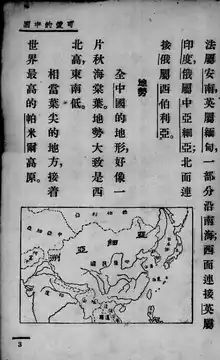 可愛的中國
法屬安南，英屬緬甸，一部分沿南海；西面連接英屬
印度，俄屬中亞細亞；北面連
接俄屬西伯利亞。
地勢
全中國的地形，好像一
片秋海棠葉。地勢大致是西
北高，東南低。
相當葉尖的地方，接着
世界最高的帕米爾高原。
亞細亞洲
3